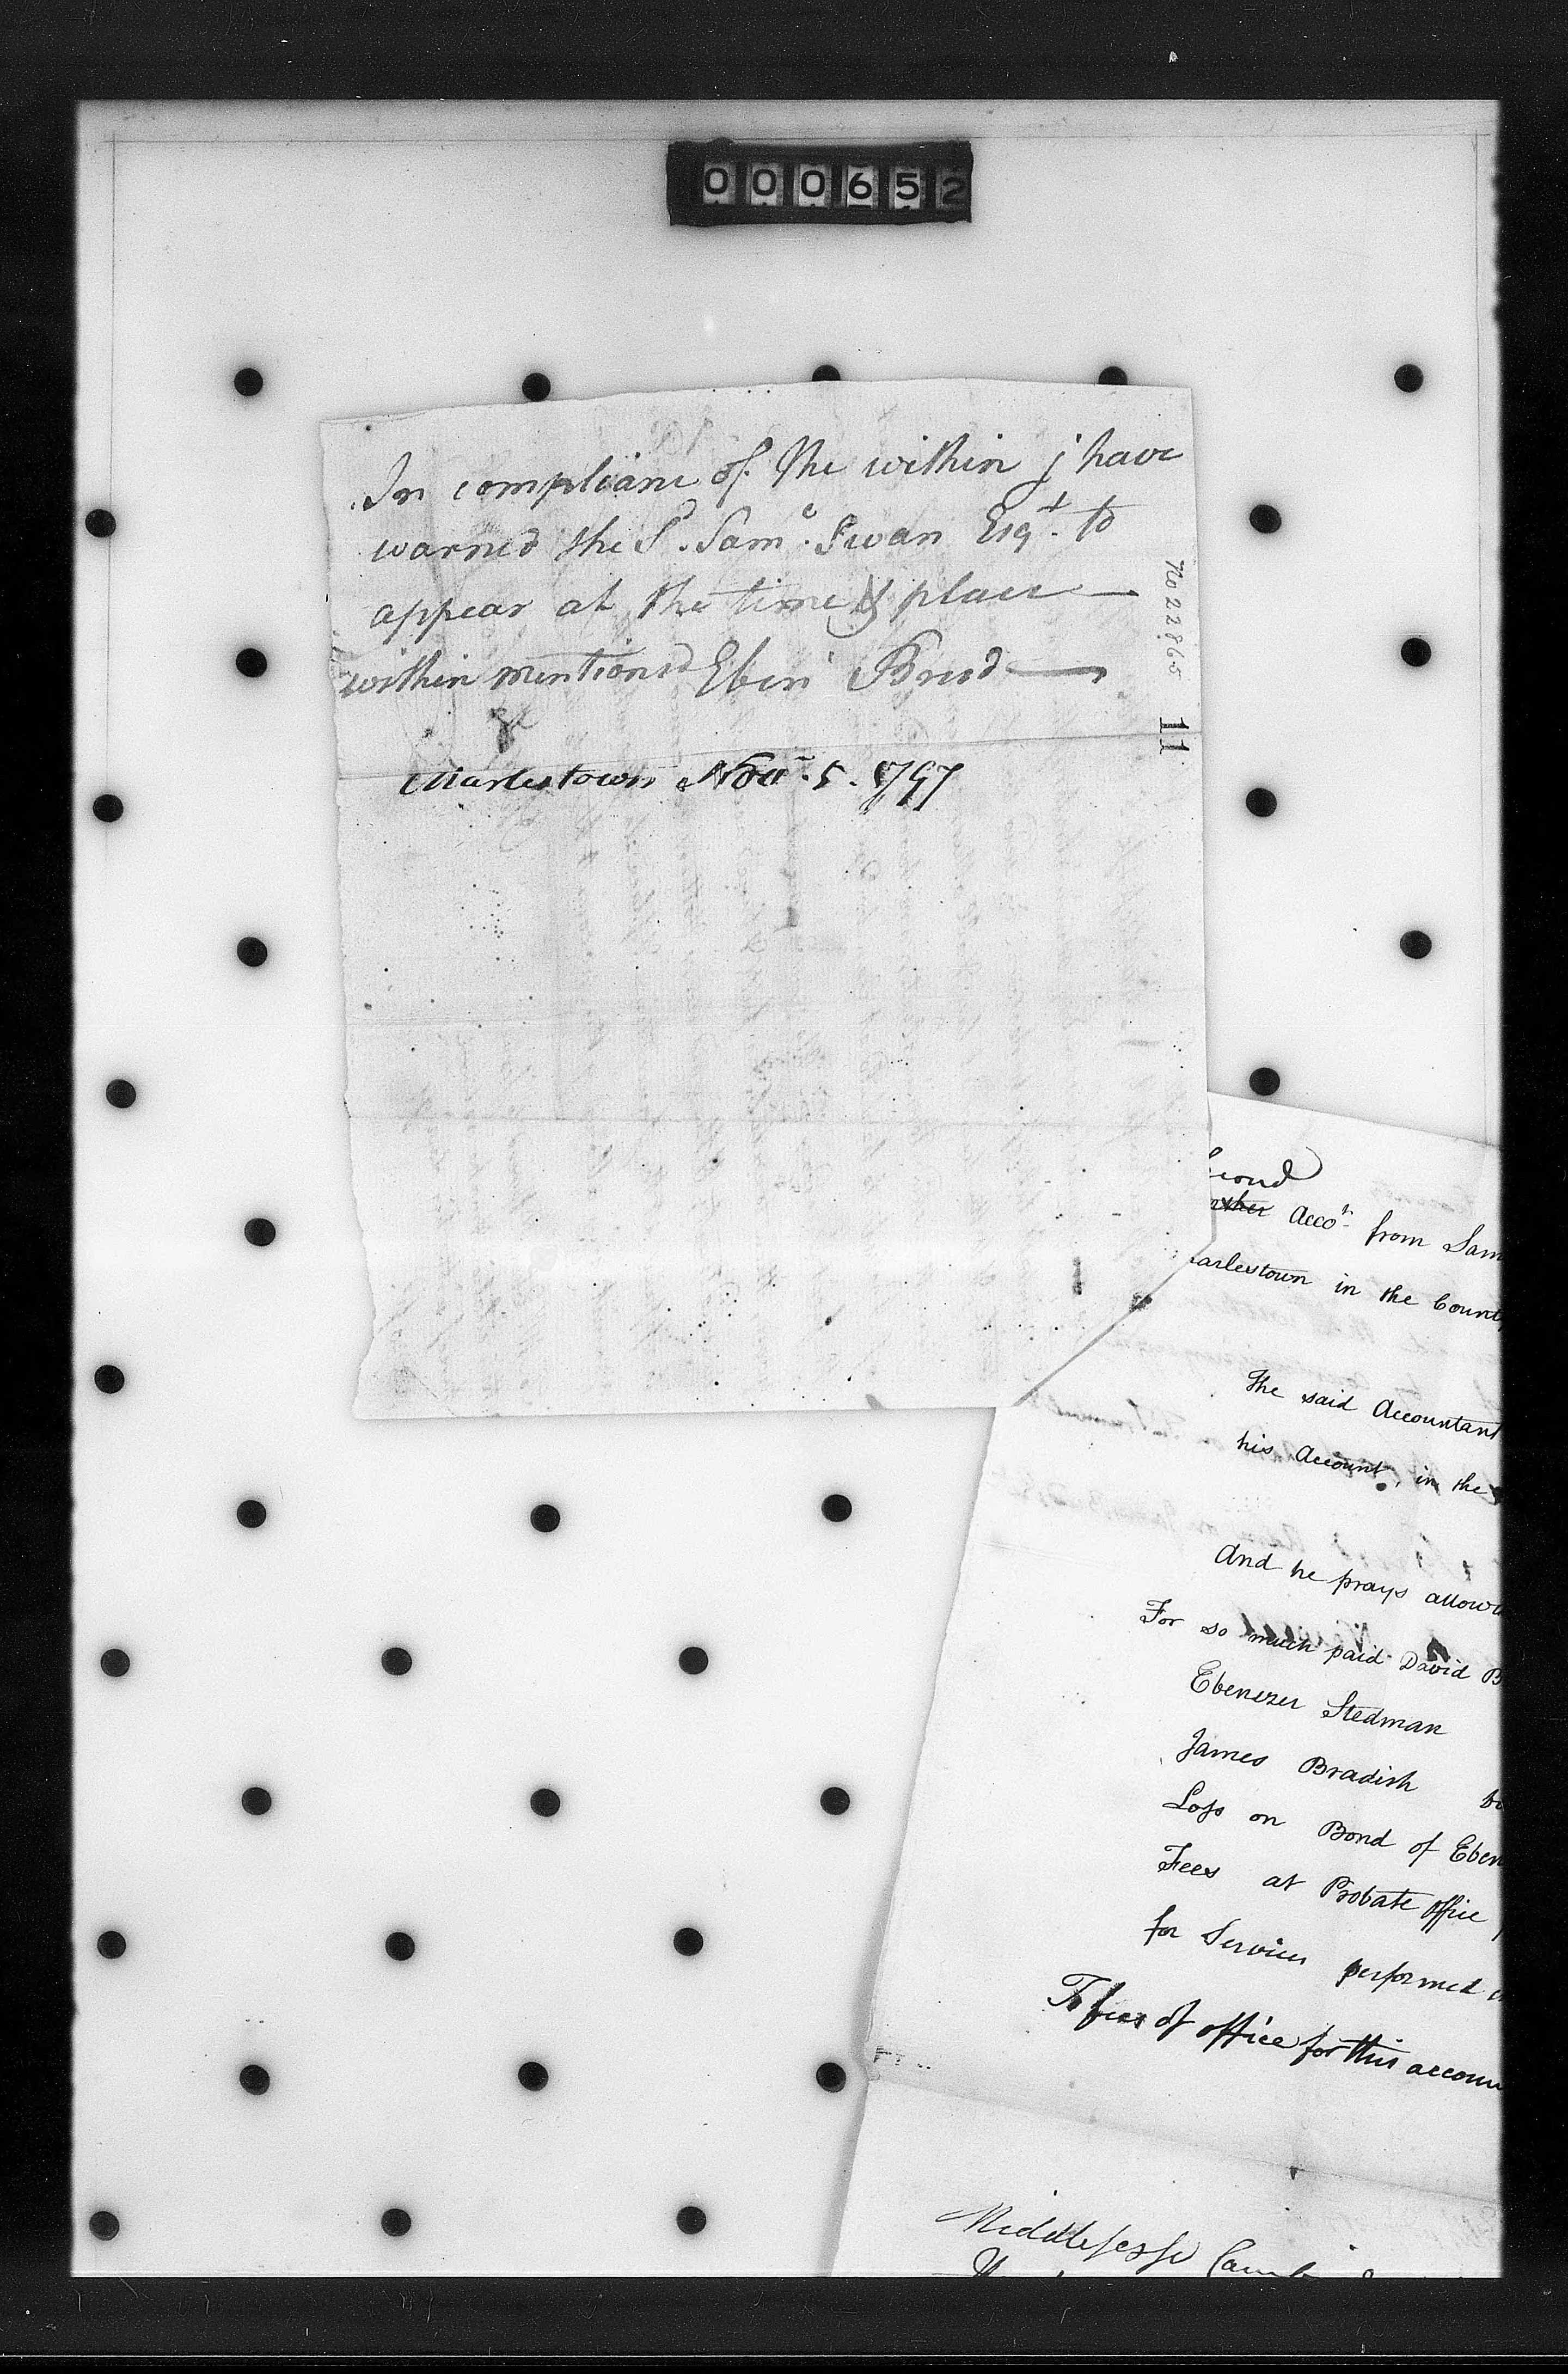 000652
In compliane of the within j have
warned the Sd. Samo. Swan Esqr. to
appear at the time & place —
within mentiond Ebenr Breed —
Charlestown Novr. 5. 1797
No 22865 11
econd
other Accot. from Sam
arlestown in the County
The said Accountant
his Account, in the
And he prays allowa
For so much paid David B
Ebenezer Stedman
James Bradish
Loss on Bond of Eben
Fees at Probate office
for Services performed
To fees of office for this accoun
Middlesex ss Camb